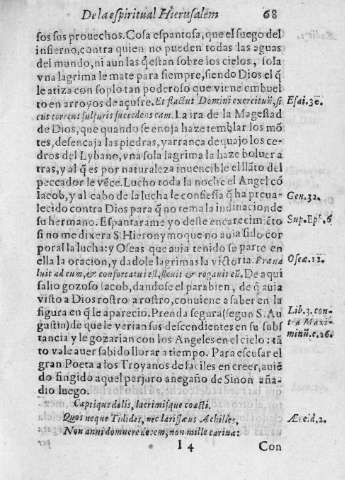 De la espiritual Hierusalem 68
sos sus prouechos. Cosa espantosa, que el fuego del
infierno, contra quien no pueden todas las aguas
del mundo, ni aun las q̃ estan sobre los cielos, sola
vna lagrima le mate para siempre, siendo Dios el q̃
le atiza con soplo tan poderoso que viene embuel
to en arroyos de açufre. Et flatus Domini exercituũ, si
cut torrens sulpuris succedens eam. La ira de la Magestad
de Dios, que quando se enoja haze temblar los mõ
tes, desencaja las piedras, y arranca de quajo los ce-
dros del Lybano, vna sola lagrima la haze boluer a
tras, y al q̃ es por naturaleza inuencible el llãto del
peccador le vẽce. Lucho toda la noche el Angel cõ
Iacob, y al cabo de la lucha le confiessa q̃ ha preua
lecido contra Dios para q̃ no tema la indinaciõ de
su hermano. Espantarame yo deste encarecimiẽto
si no me dixera S. Hieronymo que no auia sido cor
poral la lucha: y Oseas que auia tenido se parte en
ella la oracion, y dadole lagrimas la victoria. Præua
luit ad eum, & confortatus est, fleuit & rogauit eũ. De aqui
salio gozoso Iacob, dandose el parabien, de q̃ auia
visto a Dios rostro a rostro, conuiene a saber en la
figura en q̃ le aparecio. Prenda segura (segun S. Au
gustin) de que le verian sus descendientes en su sub
stancia y le gozarian con los Angeles en el cielo: tã
to vale auer sabido llorar a tiempo. Para escusar el
gran Poeta a los Troyanos de faciles en creer, auiẽ
do fingido aquel perjuro engaño de Sinon aña-
dio luego.
Captique dolis, lacrimisque coacti.
Quos neque Tidides, nec larissæus Achilles,
Non anni domuere decem, non mille carinæ:
I 4 Con
Esai. 30.
Gen. 32.
Sup. Epl. 6
Oseæ. 12.
Lib. 3. con-
tra Maxi-
minũ. c. 26.
Æneid. 2.